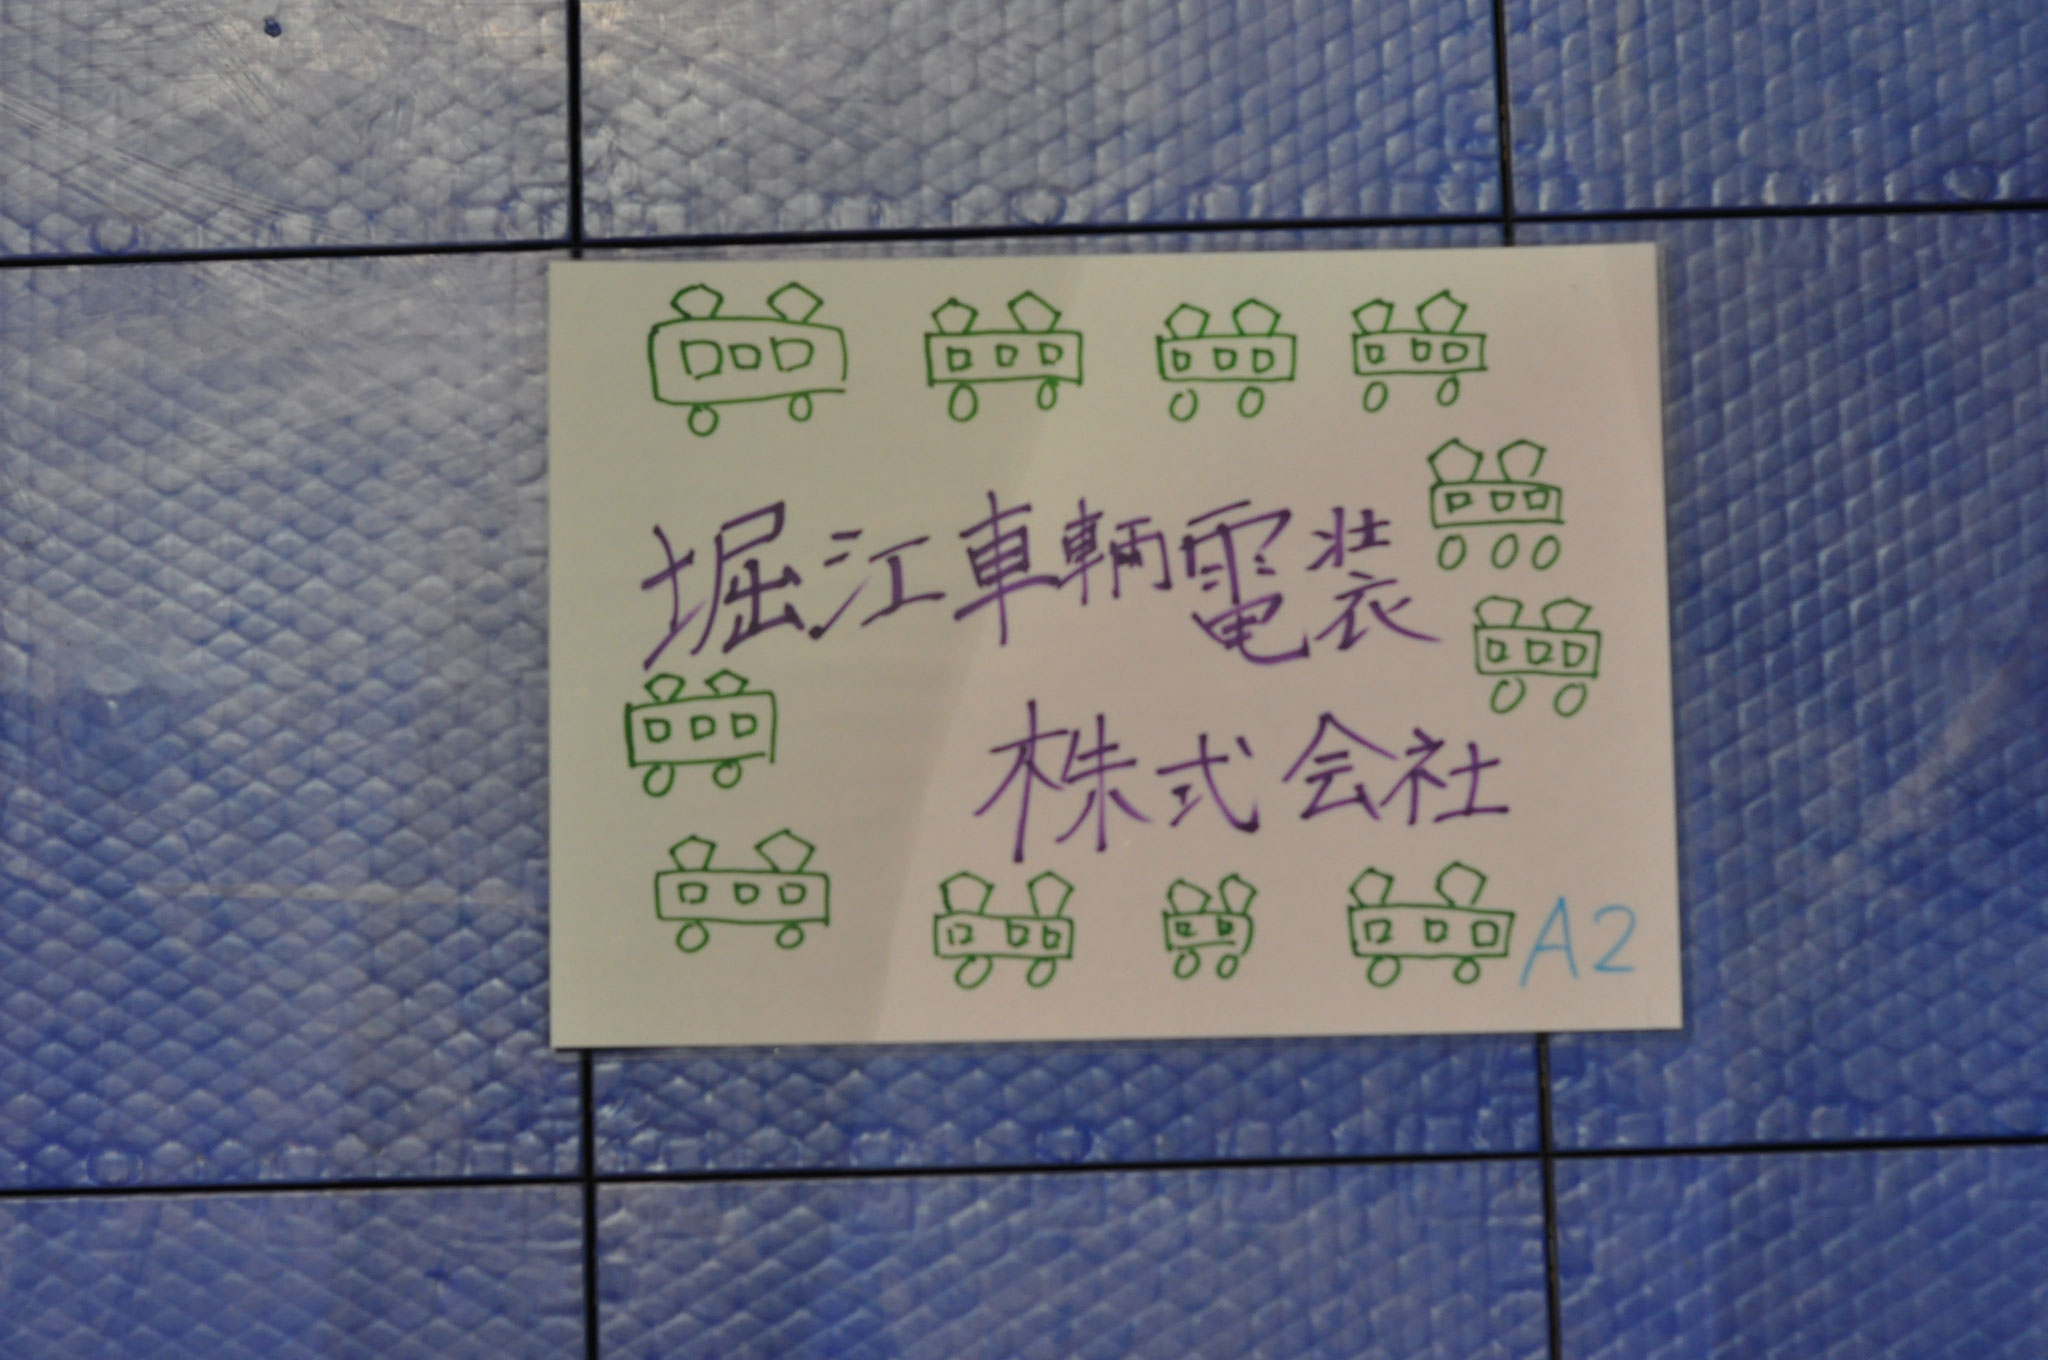 堀江車輌電装
株式会社
A2